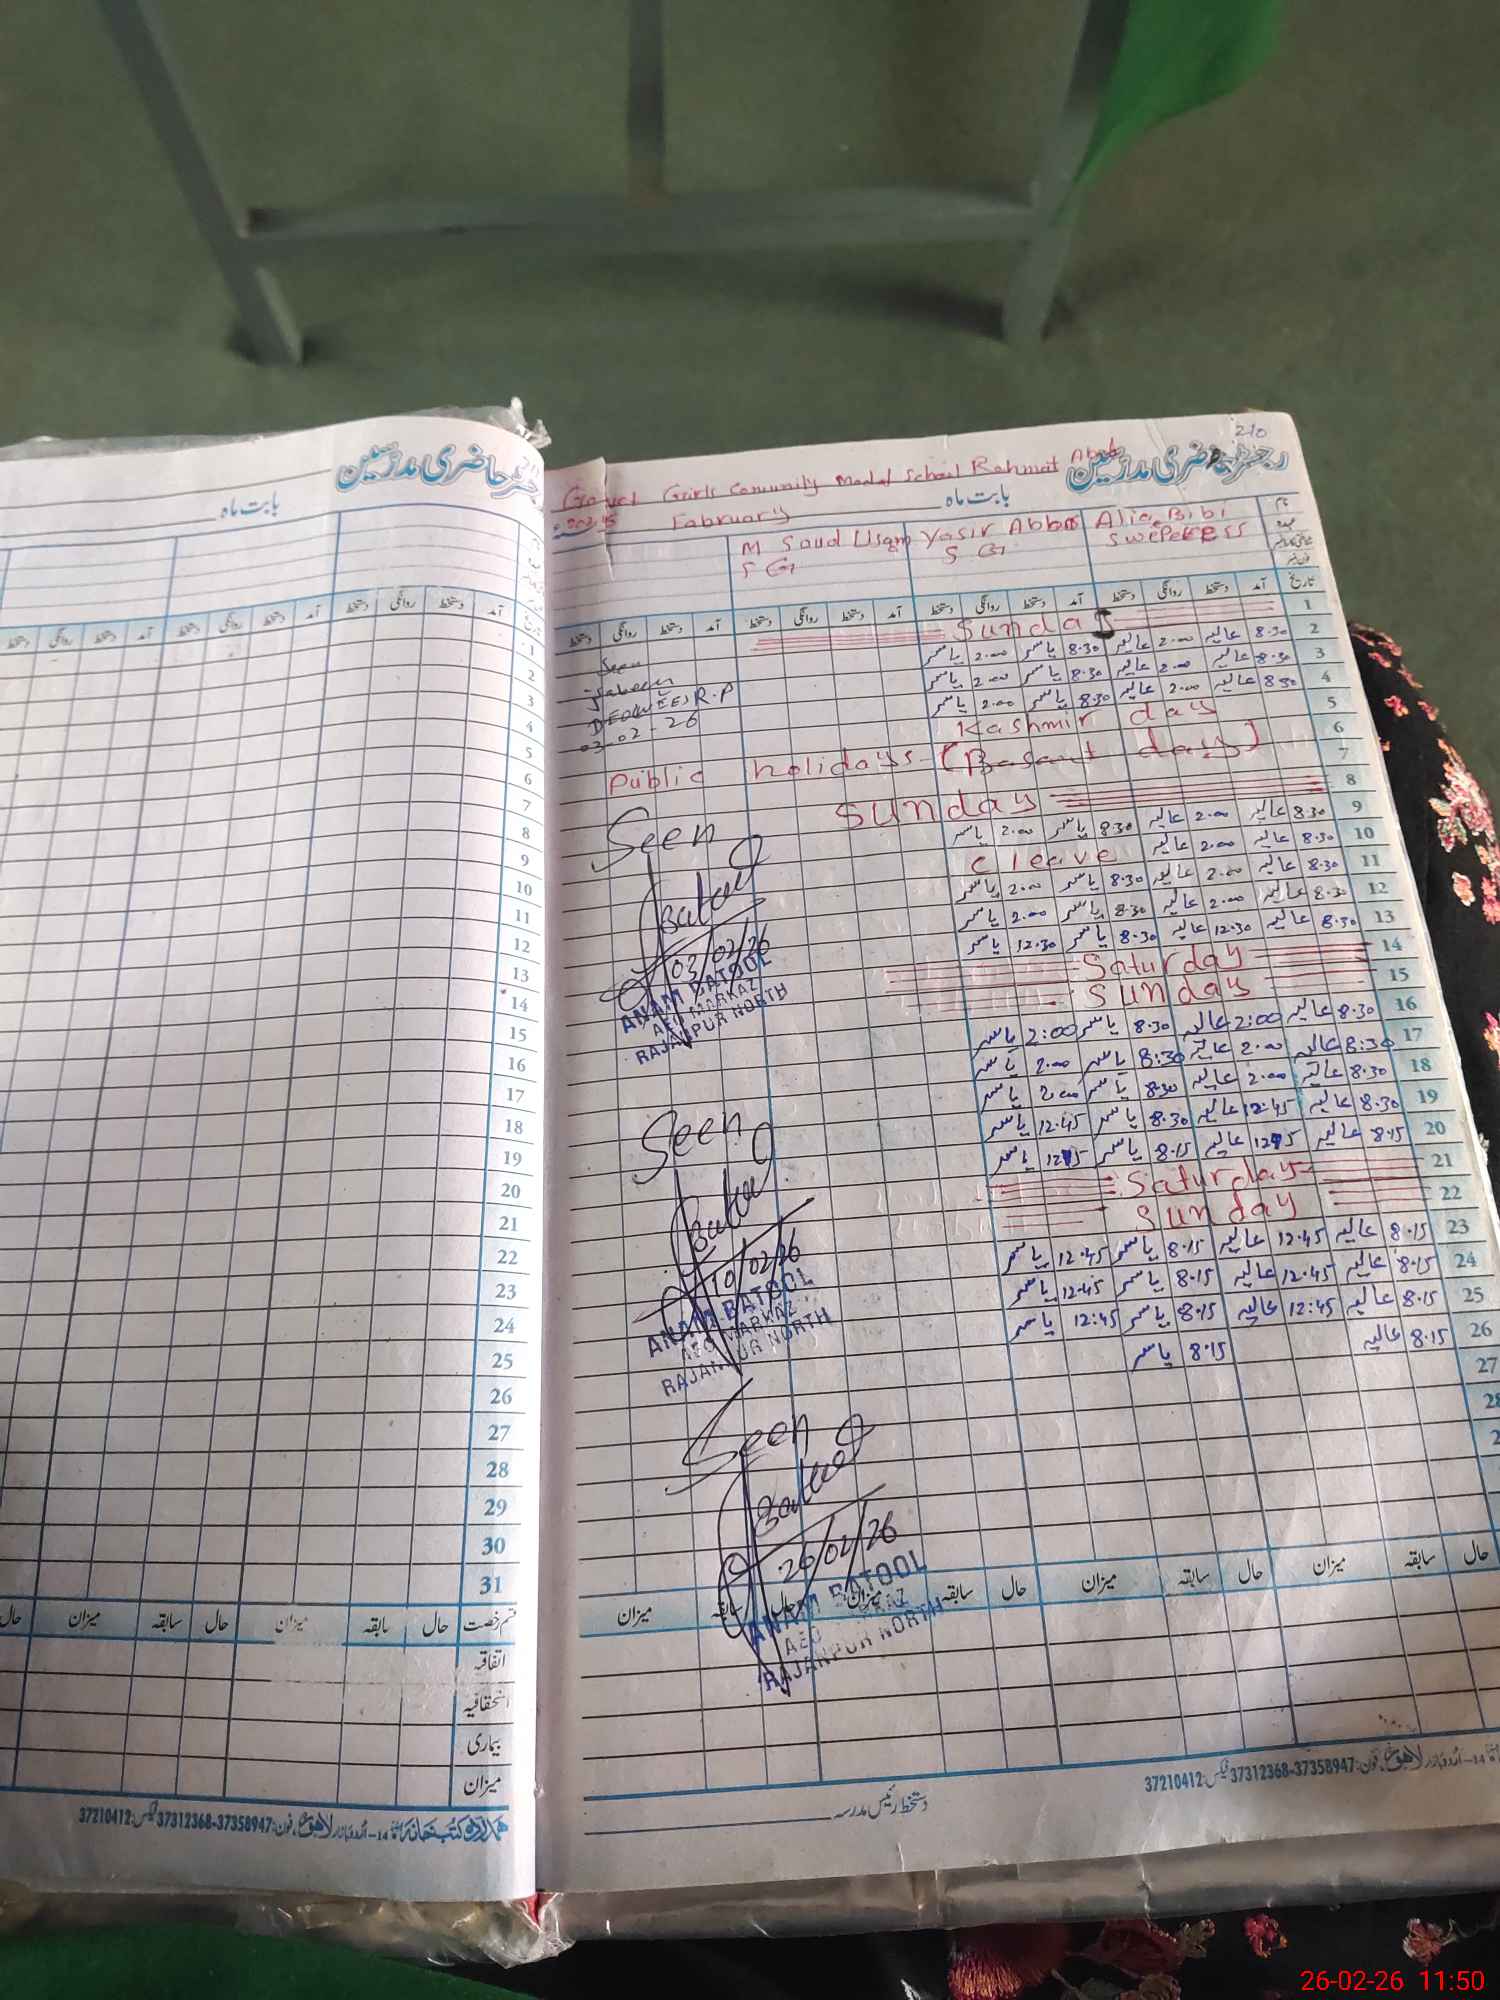 رجسٹر حاضری مدرسین
بابت ماہ
آمد دستخط روانگی دستخط آمد دستخط روانگی دستخط
1
2
3
4
5
6
7
8
9
10
11
12
13
14
15
16
17
18
19
20
21
22
23
24
25
26
27
28
29
30
31
قسم رخصت حال سابقہ میزان حال سابقہ میزان حال
اتفاقیہ
استحقاقیہ
بیماری
میزان
فون: 37312368-37358947 فیکس: 37210412
210
رجسٹر حاضری مدرسین
Girls Community Model School Rahmat Abad
بابت ماہ
Fabruary
M Saud Usam Yasir Abbas Alia Bibi
S G S G Sweperess
تاریخ آمد دستخط روانگی دستخط آمد دستخط روانگی دستخط آمد دستخط روانگی دستخط آمد دستخط روانگی دستخط
1 Sunday
2 8.30 عالیہ 2.00 عالیہ 8.30 یاسر 2.00 یاسر
3 8.30 عالیہ 2.00 عالیہ 8.30 یاسر 2.00 یاسر
4 8.30 عالیہ 2.00 عالیہ 8.30 یاسر 2.00 یاسر
5 Kashmir day
6
7 Public holidays (Basant days)
8 Sunday
9 8.30 عالیہ 2.00 عالیہ 8.30 یاسر 2.00 یاسر
10 8.30 عالیہ 2.00 عالیہ C leave
11 8.30 عالیہ 2.00 عالیہ 8.30 یاسر 2.00 یاسر
12 8.30 عالیہ 2.00 عالیہ 8.30 یاسر 2.00 یاسر
13 8.30 عالیہ 12.30 عالیہ 8.30 یاسر 12.30 یاسر
14 Saturday
15 Sunday
16 8.30 عالیہ 2:00 عالیہ 8.30 یاسر 2:00 یاسر
17 8:30 عالیہ 2.00 عالیہ 8:30 یاسر 2.00 یاسر
18 8.30 عالیہ 2.00 عالیہ 8.30 یاسر 2.00 یاسر
19 8.30 عالیہ 12.45 عالیہ 8.30 یاسر 12.45 یاسر
20 8.15 عالیہ عالیہ 8.15 یاسر یاسر
21 Saturday
22 Sunday
23 8.15 عالیہ 12.45 عالیہ 8.15 یاسر 12.45 یاسر
24 8.15 عالیہ 12.45 عالیہ 8.15 یاسر 12.45 یاسر
25 8.15 عالیہ 12:45 عالیہ 8.15 یاسر 12:45 یاسر
26 8.15 عالیہ 8.15 یاسر
27
28
Seen
03-02-26
Seen
03/02/26
ANAM BATOOL
AEO MARKAZ
RAJANPUR NORTH
Seen
10/02/26
ANAM BATOOL
AEO MARKAZ
RAJANPUR NORTH
Seen
26/02/26
ANAM BATOOL
AEO MARKAZ
RAJANPUR NORTH
حال سابقہ میزان حال سابقہ میزان حال سابقہ میزان حال سابقہ میزان
فون: 37312368-37358947 فیکس: 37210412
دستخط رئیس مدرسہ
26-02-26 11:50